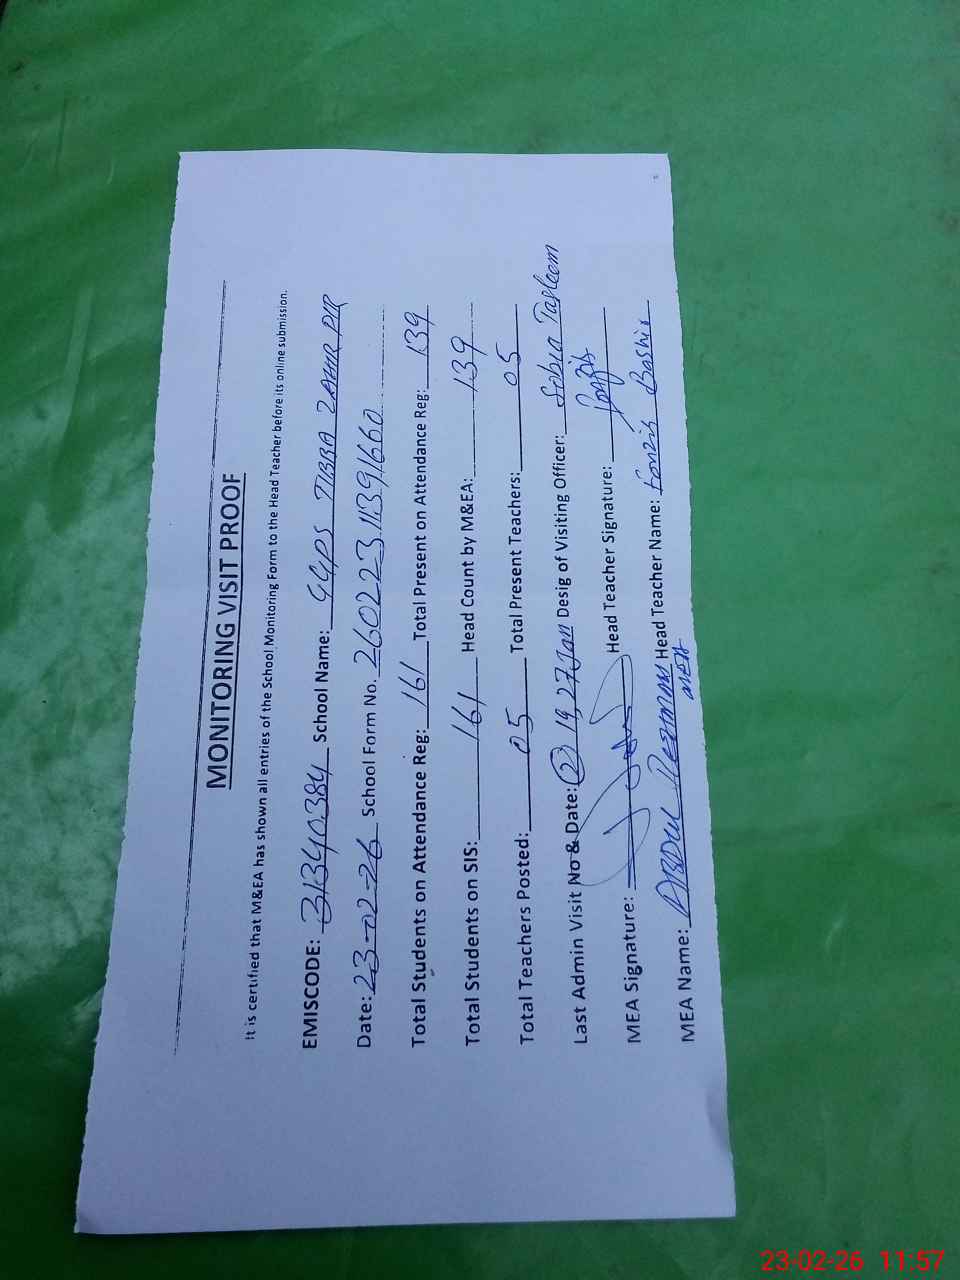 MONITORING VISIT PROOF
It is certified that M&EA has shown all entries of the School Monitoring Form to the Head Teacher before its online submission.
EMISCODE: 31340384 School Name: GGPS TIBBA ZAHIR PIR
Date: 23-02-26 School Form No. 260223.11391660
Total Students on Attendance Reg: 161 Total Present on Attendance Reg: 139
Total Students on SIS: 161 Head Count by M&EA: 139
Total Teachers Posted: 05 Total Present Teachers: 05
Last Admin Visit No & Date: (2) 19,27 Jan Desig of Visiting Officer: Sobia Tasleem
MEA Signature: Head Teacher Signature:
MEA Name: Abdul Rehman MEA Head Teacher Name: Bashir
23-02-26 11:57